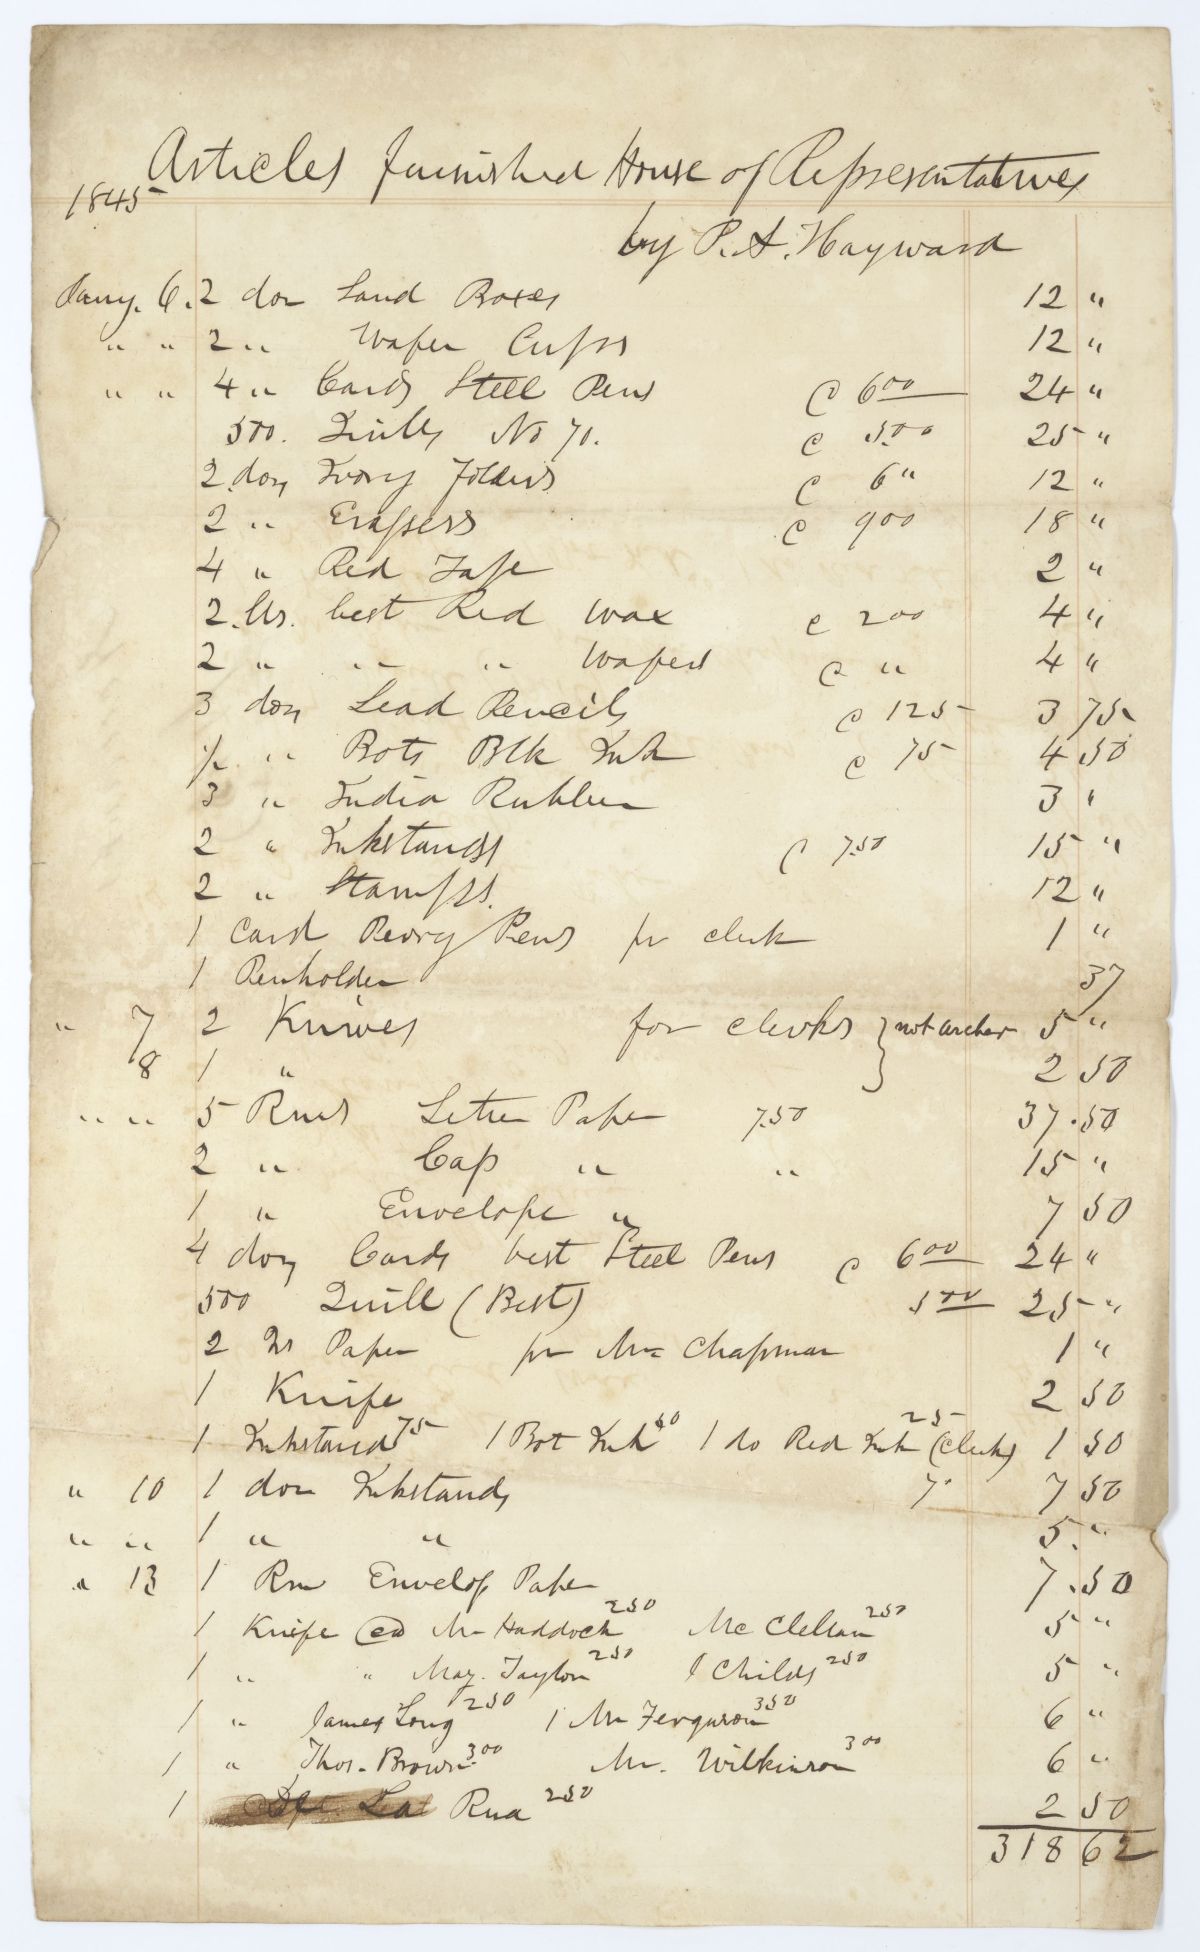 Articles furnished House of Representatives
1845
by P. A. Hayward
Jany. 6. 2 doz Sand Boxes 12 "
" " 2 " Wafer Cups 12 "
" " 4 " Cards Steel Pens @ 6 00 24 "
500. Quills No 70. @ 5.00 25 "
2 doz Ivory Folders @ 6 " 12 "
2 " Erasers @ 900 18 "
4 " Red Tape 2 "
2 lbs. best Red Wax @ 200 4 "
2 " " " Wafers @ " 4 "
3 doz Lead Pencils @ 125 3 75
1/2 " Bots Blk Ink @ 75 4 50
3 " India Rubber 3 "
2 " Inkstands @ 7.50 15 "
2 " Stamps. 12 "
1 Card Perry Pens for clerk 1 "
1 Penholder 37
" 7 2 Knives for clerks } not archer 5 "
8 1 " 2 50
" " 5 Rms Letter Paper 7.50 37.50
2 " Cap " " 15 "
1 " Envelope " 7 50
4 doz Cards best Steel Pens @ 6 00 24 "
500 Quill (Best) 5 00 25 "
2 Qr Paper for Mr Chapman 1 "
1 Knife 2 50
1 Inkstand 75 1 Bot Ink 50 1 do Red Ink 25 (Clerks) 1 50
" 10 1 doz Inkstands 7. 7 50
" " 1 " " 5. "
" 13 1 Rm Envelop Paper 7.50
1 Knife ea Mr Haddock 250 Mc Clellan 250 5 "
1 " " May. Taylor 250 1 Childs 250 5 "
1 " James Long 250 1 Mr Ferguson 350 6 "
1 " Thos. Brown 3.00 Mr. Wilkinson 3 00 6 "
1 La Rua 250 2 50
318 62